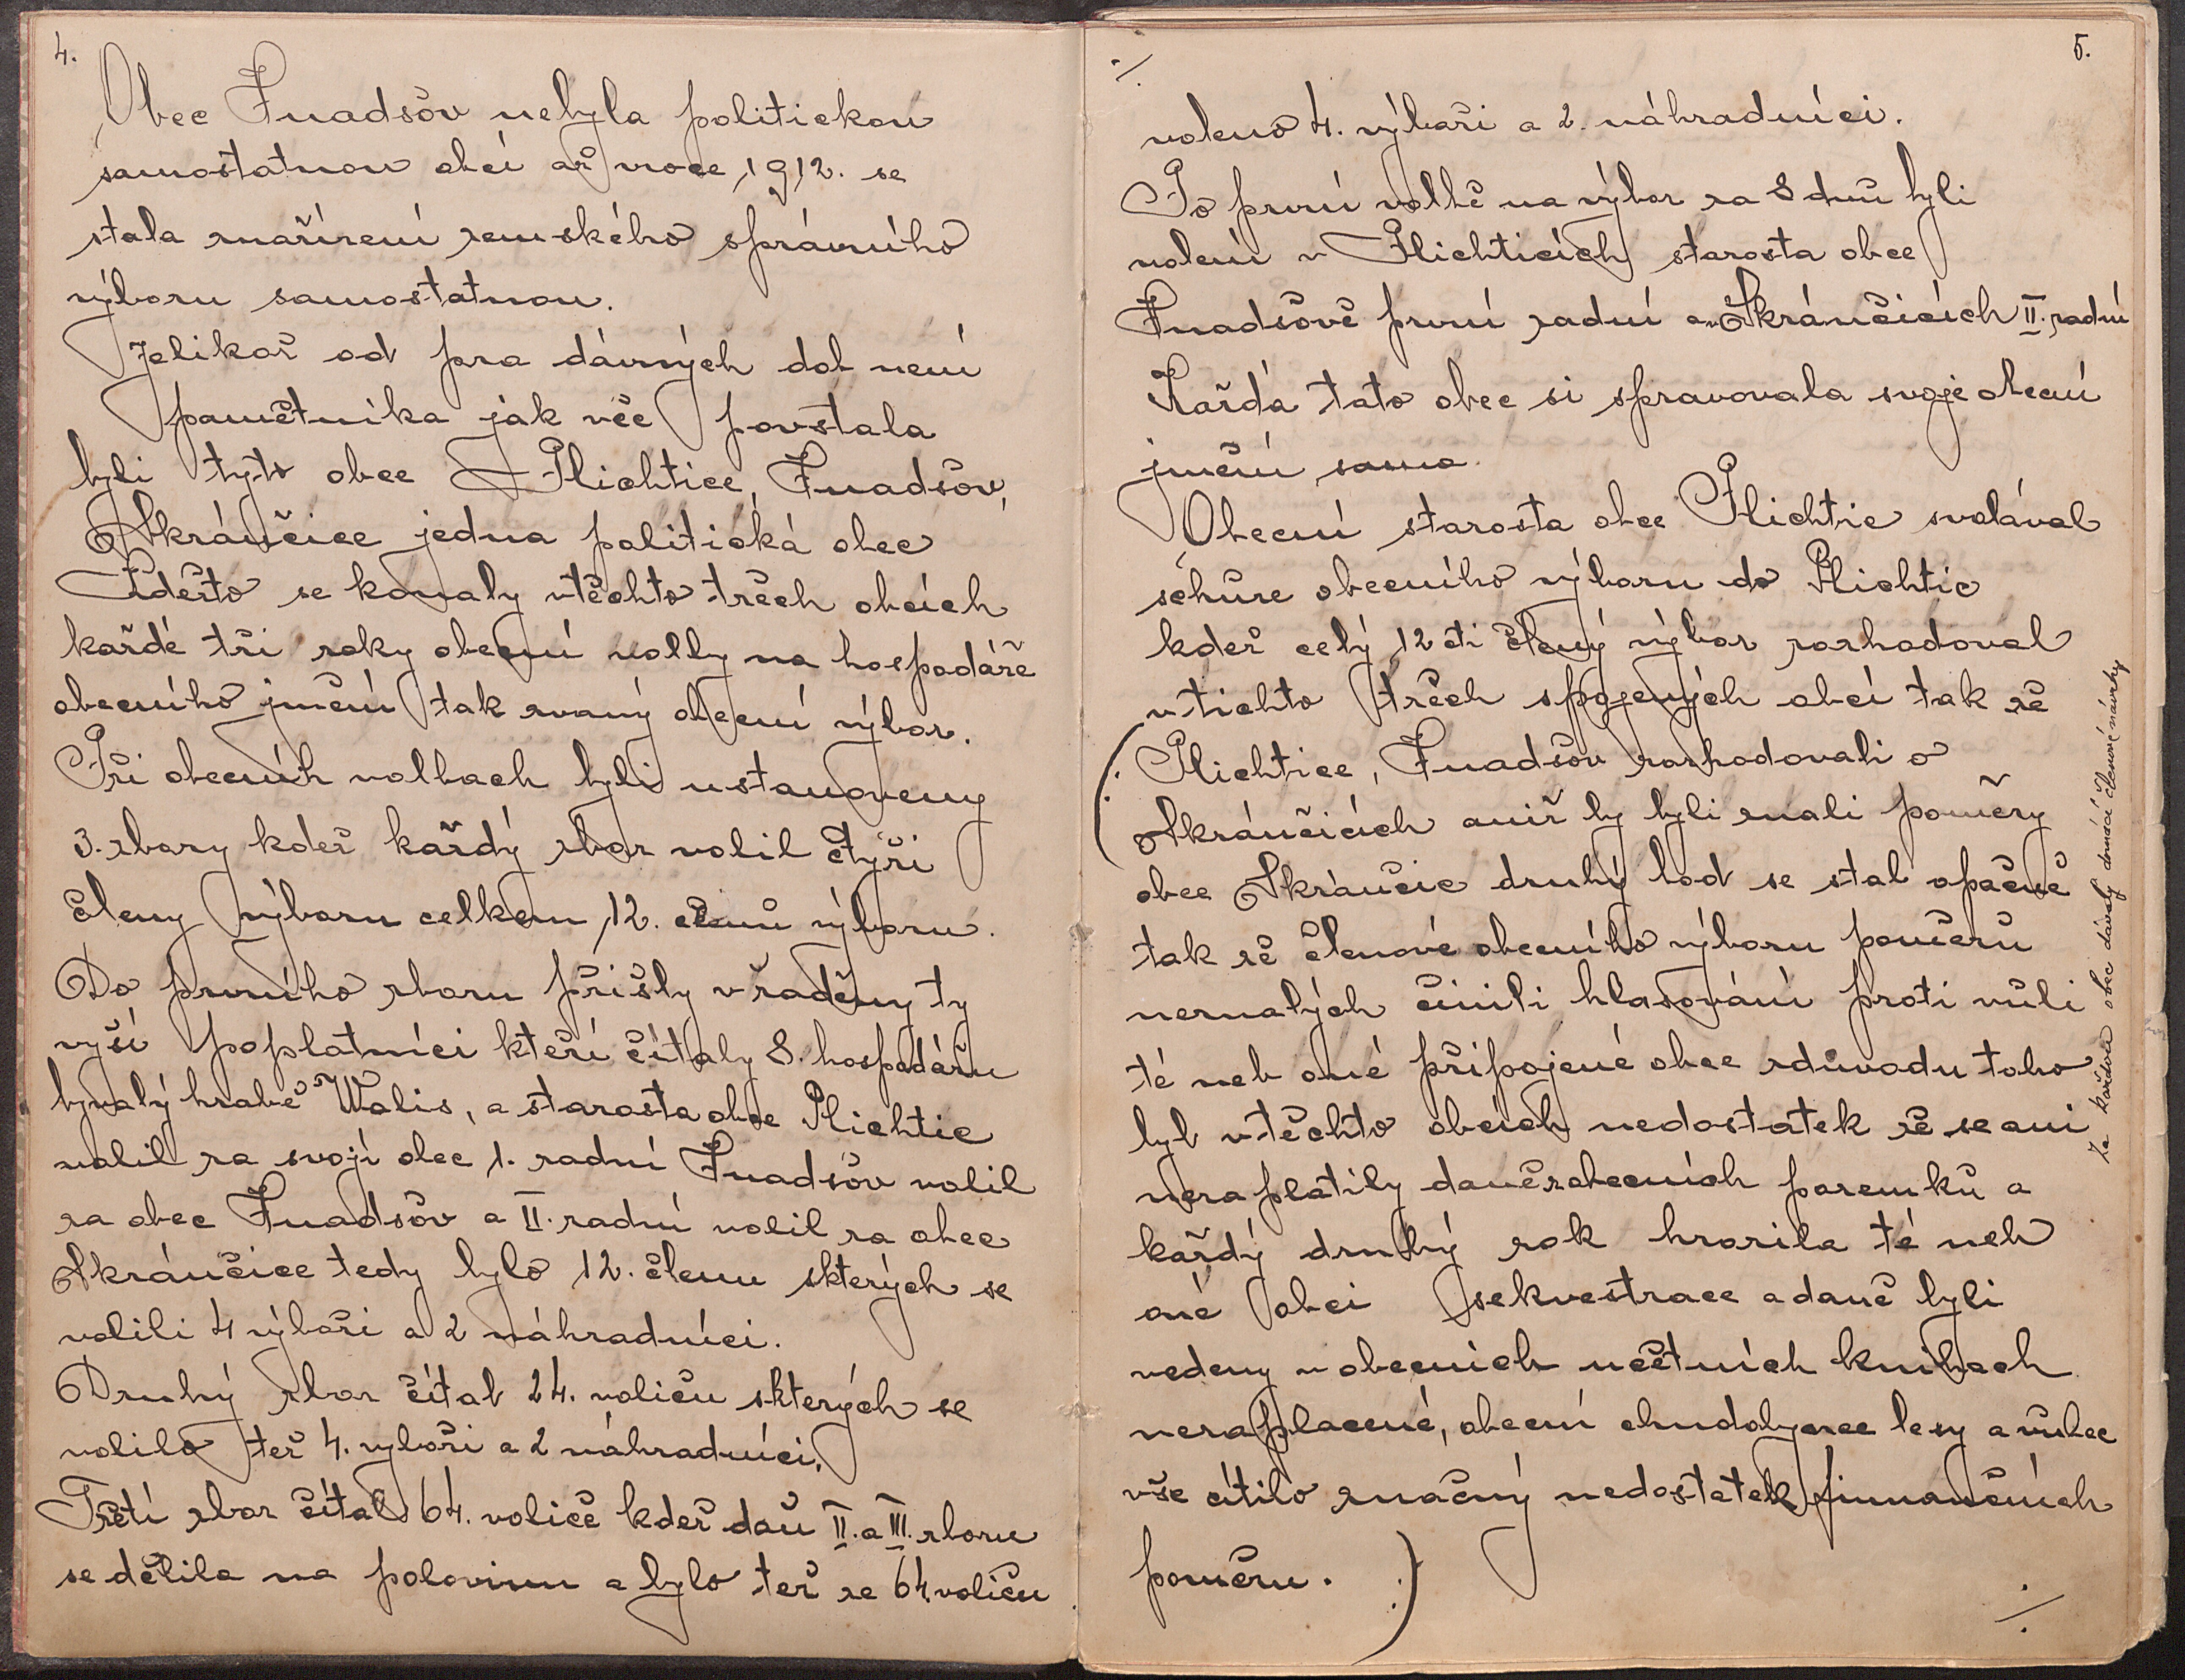 4.
Obec Gnadsov nebyla politickou
samostatnou obcí až vroce 1912. se
stala znařízení zemského správního
výboru samostatnou.
Jelikož od pra dávných dob není
pamětníka jak věc povstala
byli tyto obce Plichtice, Gnadsov,
Skránčice jedna politická obec
Pděsto se konaly vtěchto třech obcích
každé tři roky obecní volby na hospodáře
obecního jmění tak zvaný obecní výbor.
Při obecních volbach byli ustanoveny
3. zbory kdež každý zbor volil čtyři
členy výboru celkem 12. členů výboru.
Do prvního zboru přišly vřaděny ty
vyší poplatníci kteří čítaly 8. hospodářu
bývalý hrabě Walis, a starosta obce Plichtic
volil za svoji obec 1. radní Gnadsov volil
za obec Gnadsov a II. radní volil za obec
Skránčice tedy bylo 12. členu skterých se
volili 4 výboři a 2 náhradníci.
Druhý zbor čítal 24. voliču skterých se
volilo též 4. vyboři a 2 náhradníci.
Třetí zbor čítal 64. voliče kdež daň II. a III. zboru
se dělila na polovinu a bylo též ze 64 voliču
5.
voleno 4. výboři a 2. náhradníci.
Po první volbě na výbor za 8 dnů byli
volení v Plichticích starosta obce
Gnadsově první radní a v Skránčicích II. radní
Každá tato obec si spravovala svoje obecní
jmění sama.
Obecní starosta obce Plichtic svolával
schůze obecního výboru do Plichtic
kdež celý 12 cti člený výbor rozhodoval
vtichto třech spojených obcí tak že
(Plichtice, Gnadsov rozhodovali o
Skránčicích aniž by byli znali poměry
obce Skránčic druhý bod se stal opačně
tak že členové obecního výboru poměrů
neznalých činili hlasování proti vůli
té neb oné připojené obce zdůvodu toho
byl vtěchto obcích nedostatek že se ani
nezaplatily daně zobecních pozemků a
každý druhý rok hrozila té neb
oné obci sekvestrace a daně byli
vedeny v obecních učetních knihach
nezaplacené, obecní chudobynec lesy a vůbec
vše cítilo značný nedostatek finnančních
poměru.)
Za každou obec dávaly domácí členové návrhy